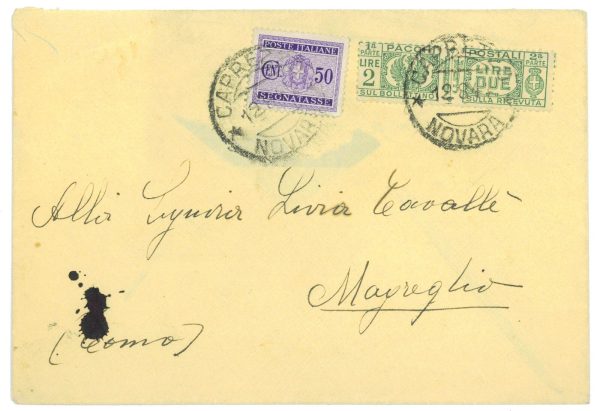 POSTE ITALIANE
CENT. 50
SEGNATASSE
1ª PARTE PACCHI POSTALI 2ª PARTE
LIRE 2
LIRE DUE
SUL BOLLETTINO SULLA RICEVUTA
NOVARA
NOVARA
Alla Signora Livia Cavallè
Magreglio
(Como)